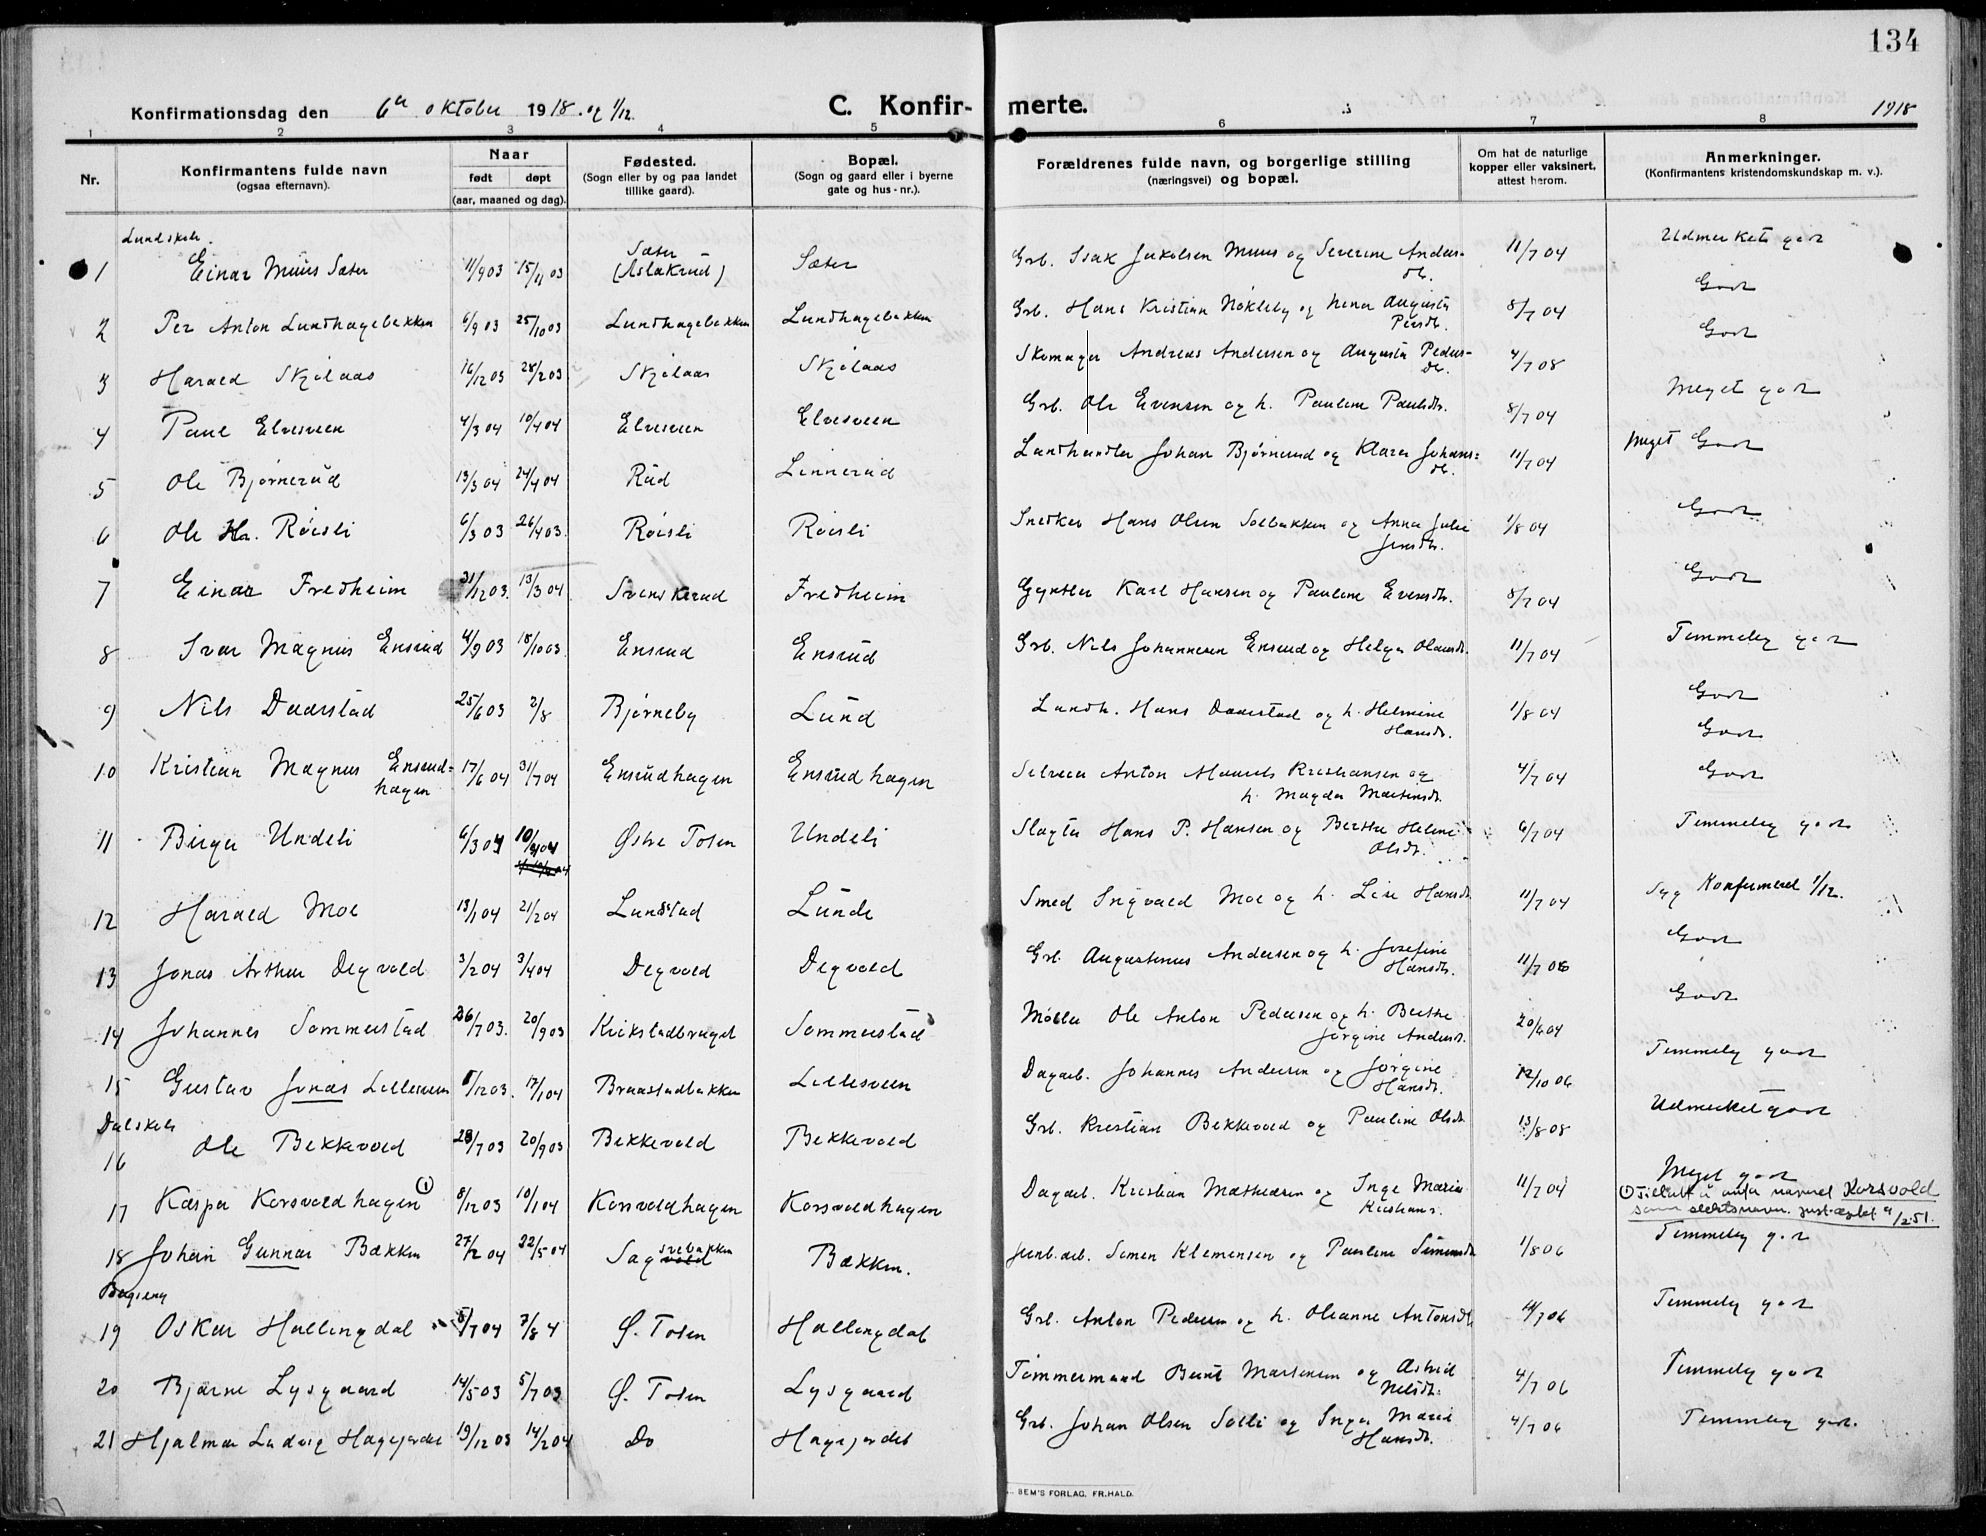 134
Konfirmationsdag den 6te oktober 1918. og 1/12.
C. Konfirmerte.
1918
1 2 3 4 5 6 7 8
Nr.
Konfirmantens fulde navn
(ogsaa efternavn).
Naar
født døpt
(aar, maaned og dag).
Fødested.
(Sogn eller by og paa landet
tillike gaard).
Bopæl.
(Sogn og gaard eller i byerne
gate og hus-nr.).
Forældrenes fulde navn, og borgerlige stilling
(næringsvei) og bopæl.
Om hat de naturlige
kopper eller vaksinert,
attest herom.
Anmerkninger.
(Konfirmantens kristendomskundskap m. v.).
Lundskole.
1 Einar Muus Sæter 11/9 03 15/11 03 Sæter (Aslakrud) Sæter Grb. Isak Jakobsen Muus og Severine Andersdt. 11/7 04 Udmerket godt
2 Per Anton Lundhagebakken 6/9 03 25/10 03 Lundhagebakken Lundhagebakken Grb. Hans Kristian Nøkleby og Augusta Persdt. 8/7 04 Godt
3 Harald Skjelaas 16/12 03 28/2 03 Skjelaas Skjelaas Skomager Andreas Andersen og Augusta Pedersdt. 4/7 08 Godt
4 Paul Elvesveen 4/3 04 10/4 04 Elvesveen Elvesveen Grb. Ole Evensen og h. Pauline Paulsdt. 8/7 04 Meget godt
5 Ole Bjørnerud 13/3 04 24/4 04 Rud Linnerud Landhandler Johan Bjørnerud og Klara Johansdt. 11/7 04 Meget Godt
6 Ole Kr. Røisli 6/3 03 26/4 03. Røisli Røisli Snedker Hans Olsen Solbakken og Anna Julie Jensdt. 1/8 04 Godt
7 Einar Fredheim 31/12 03. 13/3 04 Svenskerud Fredheim Gjørtler Karl Hansen og Pauline Evensdt. 8/7 04 Godt
8 Ivar Magnus Ensrud 4/9 03 18/10 03. Ensrud Ensrud Grb. Nils Johannesen Ensrud og Helga Olausdt. 11/7 04 Temmelig godt
9 Nils Daarstad 25/6 03 2/8 Bjørneby Lund Landh. Hans Daarstad og h. Helmine Hansdt. 1/8 04 Godt
Godt
10 Kristian Magnus Ensrudhagen 17/6 04 31/7 04 Ensrudhagen Ensrudhagen Anton Kristiansen og h. Magda Martinsdt. 4/7 04 Godt
11 Birger Undeli 6/3 04 10/4 04 Østre Toten Undeli Slagter Hans P. Hansen og Berthe Helene Olsdt. 6/7 04 Temmelig godt
12 Harald Moe 13/1 04 21/2 04 Lundstad Lunde Smed Ingvald Moe og h. Lise Hansdt. 11/7 04 Syg Konfirmeret 1/12.
13 Jonas Arthur Degvold 3/2 04 3/4 04 Degvold Degvold Grb. Augustinus Andersen og h. Josefine Hansdt. 11/7 06 Godt
14 Johannes Sommerstad 26/7 03. 20/9 03 Kvikstadbraget Sommerstad Møller Ole Anton Pedersen og h. Berthe Jørgine Andersdt. 20/6 04 Godt
15 Gustav Jonas Lillesveen 8/12 03. 17/1 04 Braastadbakken Lillesveen Dagarb. Johannes Andersen og Jørgine Hansdt. 12/10 06 Temmelig godt
Dalskole
16 Ole Bekkevold 28/7 03 20/9 03 Bekkevold Bekkevold Grb. Kristian Bekkevold og Pauline Olsdt. 13/8 08 Udmerket godt
17 Kaspar Korsvoldhagen (1) 8/12 03 10/1 04 Korsvoldhagen Korsvoldhagen Dagarb. Kristian Mathiasen og Inge Marie Kristians. 11/7 04 Meget godt
(1) Tillatt å anta navnet Korsvold
som slektsnavn. Just.dept 9/2 51.
18 Johan Gunnar Bækken 27/2 04 22/5 04 Sagvold svebakken Bækken. Jernb.arb. Simen Klemensen og Pauline Simensdt. 1/8 06 Temmelig godt
19 Oskar Hallingdal 5/7 04 7/8 4 Ø. Toten Hallingdal Grb. Anton Pedersen og h. Oleanne Antonsdt. 4/7 06 Temmelig godt
20 Bjarne Lysgaard 14/5 03 5/7 03 Ø. Toten Lysgaard Tømmermand Bernt Martinsen og Astrid Nilsdt. 4/7 06 Temmelig godt
21 Hjalmar Ludvig Hagejordet 19/12 03 14/2 04 Do Hagejordet Grb. Johan Olsen Solli og Inga Marie Hansdt. 4/7 06 Temmelig godt.
BEM'S FORLAG. FR. HALD.